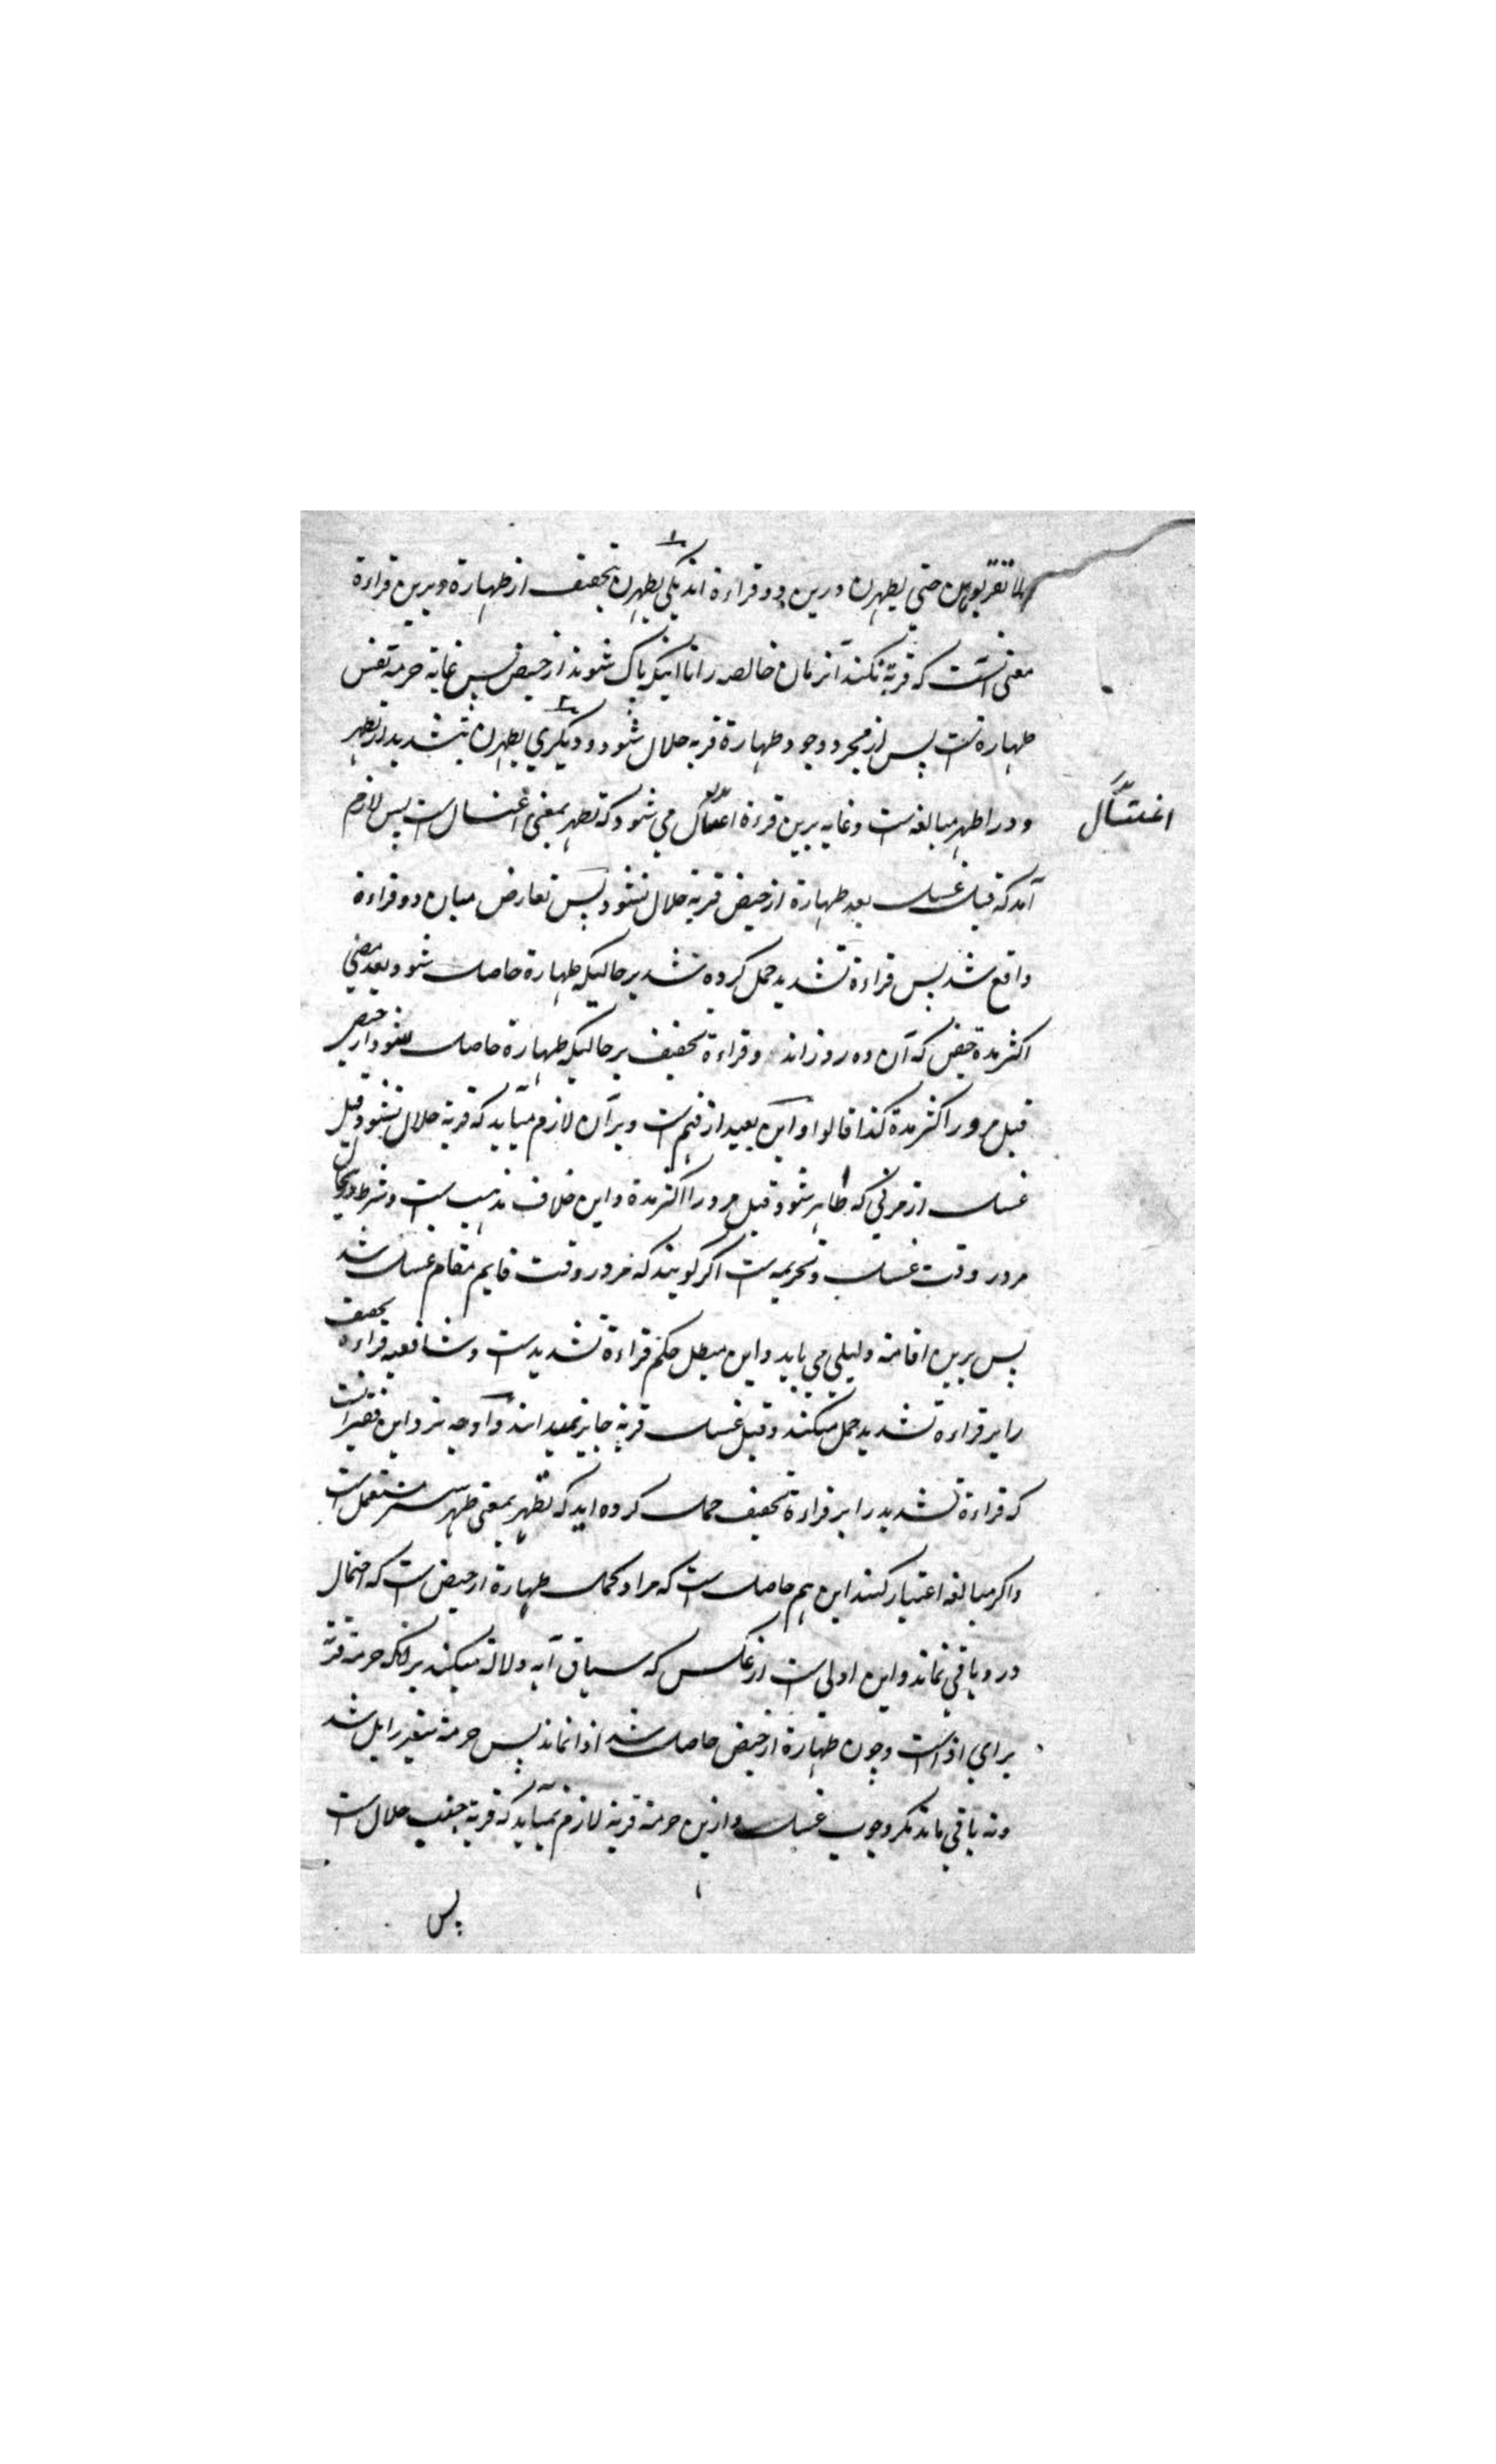 لا تقربوهن حتی یطهرن درین دو قراءة اند یکی یطهرن بتخفیف از طهارة و برین قراءة
معنی آنست که قربة نکنند آن زنان حائضه را تا اینکه پاک شوند از حیض پس غایة حرمة نفس
طهارة است پس از مجرد وجود طهارة قربة حلال شود و دیگری یطهرن بتشدید از تطهر
و در اطهر مبالغه است و غایه برین قرءة می شود که تطهر بمعنی اغتسال است پس لازم
اغتسال
آمد که قبل غسل بعد طهارة از حیض قربة حلال نشود پس تعارض میان دو قراءة
واقع شد پس قراءة تشدید حمل کرده شد بر حالیکه طهارة حاصل شود بعد مضی
اکثر مدة حیض که آن ده روز اند و قراءة تخفیف بر حالیکه طهارة حاصل شود از حیض
قبل مرور اکثر مدة کذا قالوا و این بعید از فهم است و بر آن لازم میآید که قربة حلال نشود قبل
غسل از مرأتی که طاهر شود قبل مرور اکثر مدة و این خلاف مذهب ست و شرط در حل
مرور وقت غسل و تحریمه ست اگر گویند که مرور وقت قایم مقام غسل شد
پس برین اقامة دلیلی می باید و این مبطل حکم قراءة تشدید ست و شافعیه قراءة تخفیف
را بر قراءة تشدید حمل میکنند و قبل غسل قربة جایز نمیدانند و اوجه نزد این فقیر آنست
که قراءة تشدید را بر قراءة تخفیف حمل کرده آید که تطهر بمعنی طهر مستعمل است
و اگر مبالغه اعتبار کنند این هم حاصل است که مراد کمال طهارة از حیض است که احتمال
درو باقی نماند و این اولی است از عکس که سیاق آیه دلالة میکند بر آنکه حرمة قربة
برای اذی است و چون طهارة از حیض حاصل شد اذا نماند پس حرمة نیز زایل شد
و نه باقی ماند مگر وجوب غسل و ازین حرمة قربة لازم نمیآید که قربة جنب حلال است
پس